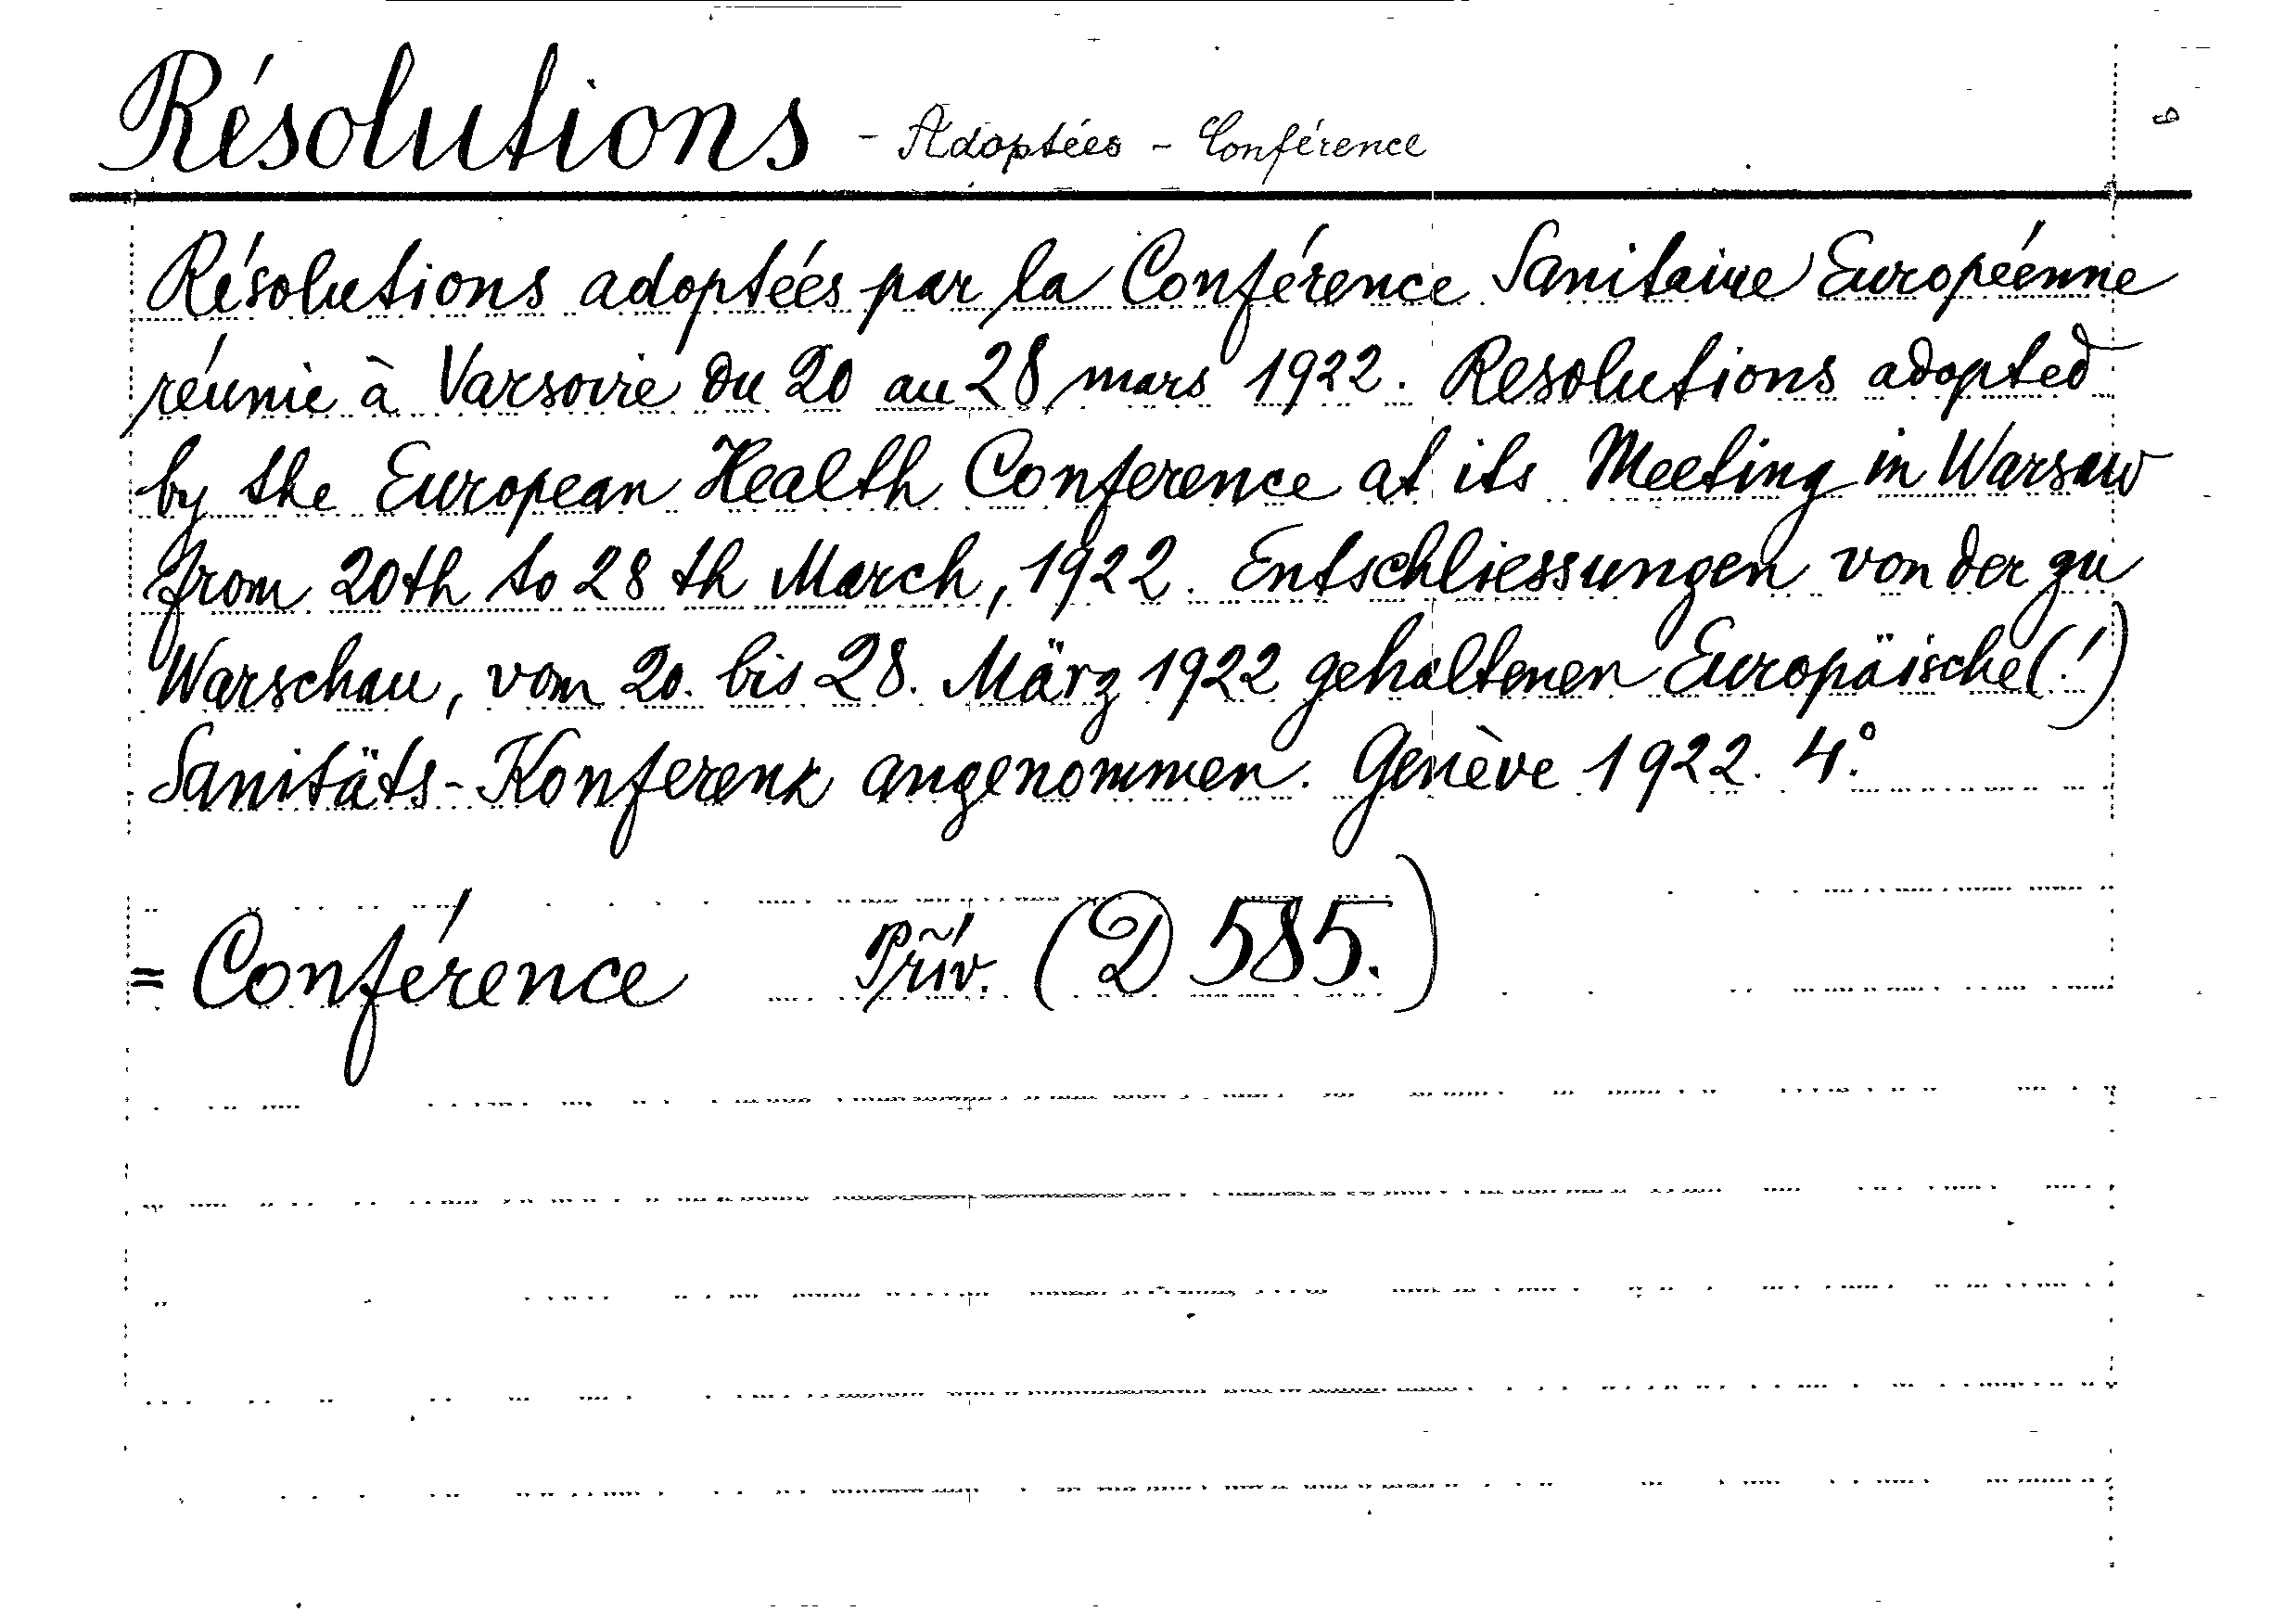 Résolutions - Adoptées - Conférence
Résolutions adoptées par la Conférence Sanitaire Européenne
réunie à Varsovie du 20 au 28 mars 1922. Resolutions adopted
by the European Health Conference at its Meeting in Warsaw
from 20th to 28th March, 1922. Entschliessungen von der zu
Warschau, vom 20. bis 28. März 1922 gehaltenen Europäische(!)
Sanitäts-Konferenz angenommen. Genève 1922. 4°.
= Conférence Priv. (D 585.)